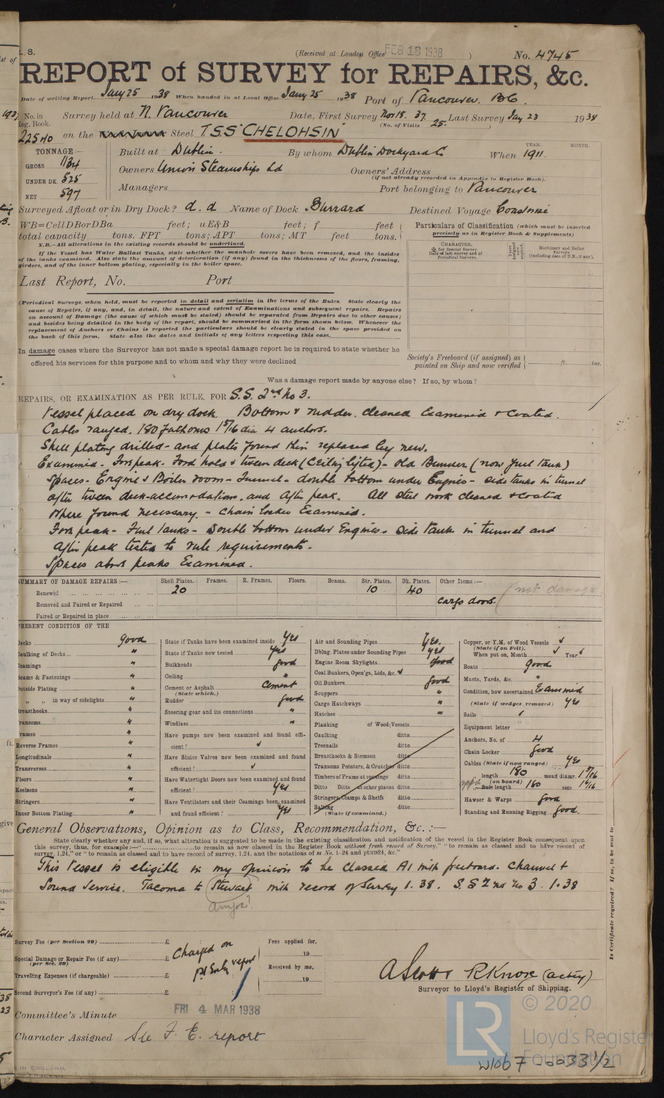 (Received at London Office FEB 18 1938)
No. 4745
REPORT of SURVEY for REPAIRS, &c.
Date of writing Report Jany 25 1938 When handed in at Local Office Jany 25 1938 Port of Vancouver. B.C.
No. in Reg. Book. Survey held at N. Vancouver Date, First Survey Nov 15. 37 Last Survey Jan 23 1938
(No. of Visits 25)
22540 on the Steel TSS "CHELOHSIN"
TONNAGE
GROSS 1134
UNDER DK. 525
NET 597
Built at Dublin. By whom Dublin Dockyard Co When 1911
YEAR. MONTH.
Owners Union Steamships Ld Owners' Address
(if not already recorded in Appendix to Register Book).
Managers Port belonging to Vancouver
Surveyed Afloat or in Dry Dock? d.d Name of Dock Burrard Destined Voyage
WB=CellDBorDBa feet; uE&B feet; f feet
total capacity tons. FPT tons; APT tons; MT feet tons.
N.B.—All alterations in the existing records should be underlined.
If the Vessel has Water Ballast Tanks, state whether the manhole covers have been removed, and the insides
of the tanks examined. Also state the amount of deterioration (if any) found in the thickness of the floors, framing,
girders, and of the inner bottom plating, especially in the boiler space.
Particulars of Classification (which must be inserted
precisely as in Register Book & Supplements)
Last Report, No. Port
(Periodical Surveys, when held, must be reported in detail and seriatim in the terms of the Rules. State clearly the
cause of Repairs, if any, and, in detail, the nature and extent of Examinations and subsequent repairs. Repairs
on account of Damage (the cause of which must be stated) should be separated from Repairs due to other causes;
and besides being detailed in the body of the report, should be summarised in the form shown below. Whenever the
replacement of Anchors or Chains is reported the particulars should be clearly stated in the space provided on
the back of this form. State also the dates and initials of any letters respecting this case.
In damage cases where the Surveyor has not made a special damage report he is required to state whether he
offered his services for this purpose and to whom and why they were declined
Society's Freeboard (if assigned) as
painted on Ship and now verified ft. ins.
Was a damage report made by anyone else? If so, by whom?
REPAIRS, OR EXAMINATION AS PER RULE, FOR S.S. 2nd No 3.
Vessel placed on dry dock. Bottom & rudder cleaned Examined & Coated.
Cables ranged. 180 fathoms 1 5/16 dia 4 anchors.
Shell plating drilled - and plates found thin replaced by new.
Examined - Forepeak - Ford hold & tween deck (Ceiling lifted) - Old Bunker (now fuel tank)
Spaces - Engine & Boiler room - Tunnel - double bottom under Engines - side tanks in tunnel
after tween deck - accommodation, and aft peak. All steel work cleaned & coated
where found necessary. - Chain locker Examined.
Fore peak - Fuel tanks - double bottom under Engines - side tank in tunnel and
After peak tested to rule requirements.
Spaces about peaks Examined.
SUMMARY OF DAMAGE REPAIRS:— Shell Plates. Frames. R. Frames. Floors. Beams. Str. Plates. Dk. Plates. Other Items:—
Renewed 20 10 40 (not damage
Removed and Faired or Repaired Cargo doors.
Faired or Repaired in place
PRESENT CONDITION OF THE
Decks good
Caulking of Decks "
Coamings "
Beams & Fastenings "
Outside Plating "
" " in way of sidelights "
Breasthooks "
Transoms "
Frames "
Reverse Frames "
Longitudinals "
Transverses "
Floors "
Keelsons "
Stringers "
Inner Bottom Plating "
State if Tanks have been examined inside Yes
State if Tanks now tested Yes
Bulkheads good
Ceiling "
Cement or Asphalt (State which.) Cement
Rudder good
Steering gear and its connections "
Windlass "
Have pumps now been examined and found efficient?
Have Sluice Valves now been examined and found efficient?
Have Watertight Doors now been examined and found efficient? Yes
Have Ventilators and their Coamings been examined and found efficient? Yes
Air and Sounding Pipes Yes
Dblng. Plates under Sounding Pipes Yes
Engine Room Skylights good
Coal Bunkers, Open'gs, Lids, &c.
Oil Bunkers good
Scuppers "
Cargo Hatchways "
Hatches "
Planking of Wood Vessels
Caulking ditto
Treenails ditto
Breasthooks & Stemson ditto
Transoms Pointers, & Crutches ditto
Timbers of Frame at openings ditto
Ditto Ditto at other places ditto
Stringers, Clamps & Shelfs ditto
Salting ditto
(State if examined.)
Copper, or Y.M. of Wood Vessels
(State if on Felt).
When put on, Month Year
Boats good
Masts, Yards, &c. "
Condition, how ascertained Examined
(State if wedges removed) Yes
Sails
Equipment letter
Anchors, No. of 4
Chain Locker good
Cables (State if now ranged) Yes
length 180 mean diamr. 1 5/16
(on board)
Rule length 180 size 1 5/16
Hawser & Warps good
Standing and Running Rigging good.
General Observations, Opinion as to Class, Recommendation, &c.:—
State clearly whether any and, if so, what alteration is suggested to be made in the existing classification and notification of the vessel in the Register Book consequent upon
this survey, thus, for example:—" to remain as now classed in the Register Book without fresh record of Survey," "to remain as classed and to have record of
survey, 1,24," or "to remain as classed and to have record of survey, 1.24, and the notations of ss No. 1-24 and pt,nd4, &c."
This Vessel is eligible in my opinion to be Classed A1 with freeboard. Channel &
Sound Service. Tacoma to Stewart with record of Survey 1.38. S.S 2nd No 3. 1.38
Survey Fee (per Section 29) £
Special Damage or Repair Fee (if any) £
(per Sec. 29)
Travelling Expenses (if chargeable) £
Second Surveyor's Fee (if any) £
Charged on
report
Fees applied for, 19
Received by me, 19
A Scott P. Knox (actg)
Surveyor to Lloyd's Register of Shipping.
FRI 4 MAR 1938
Committee's Minute
Character Assigned See F. E. report
Is Certificate required? If so, to be sent to
LR
© 2020
Lloyd's Register
Foundation
W1067-0033 1/2